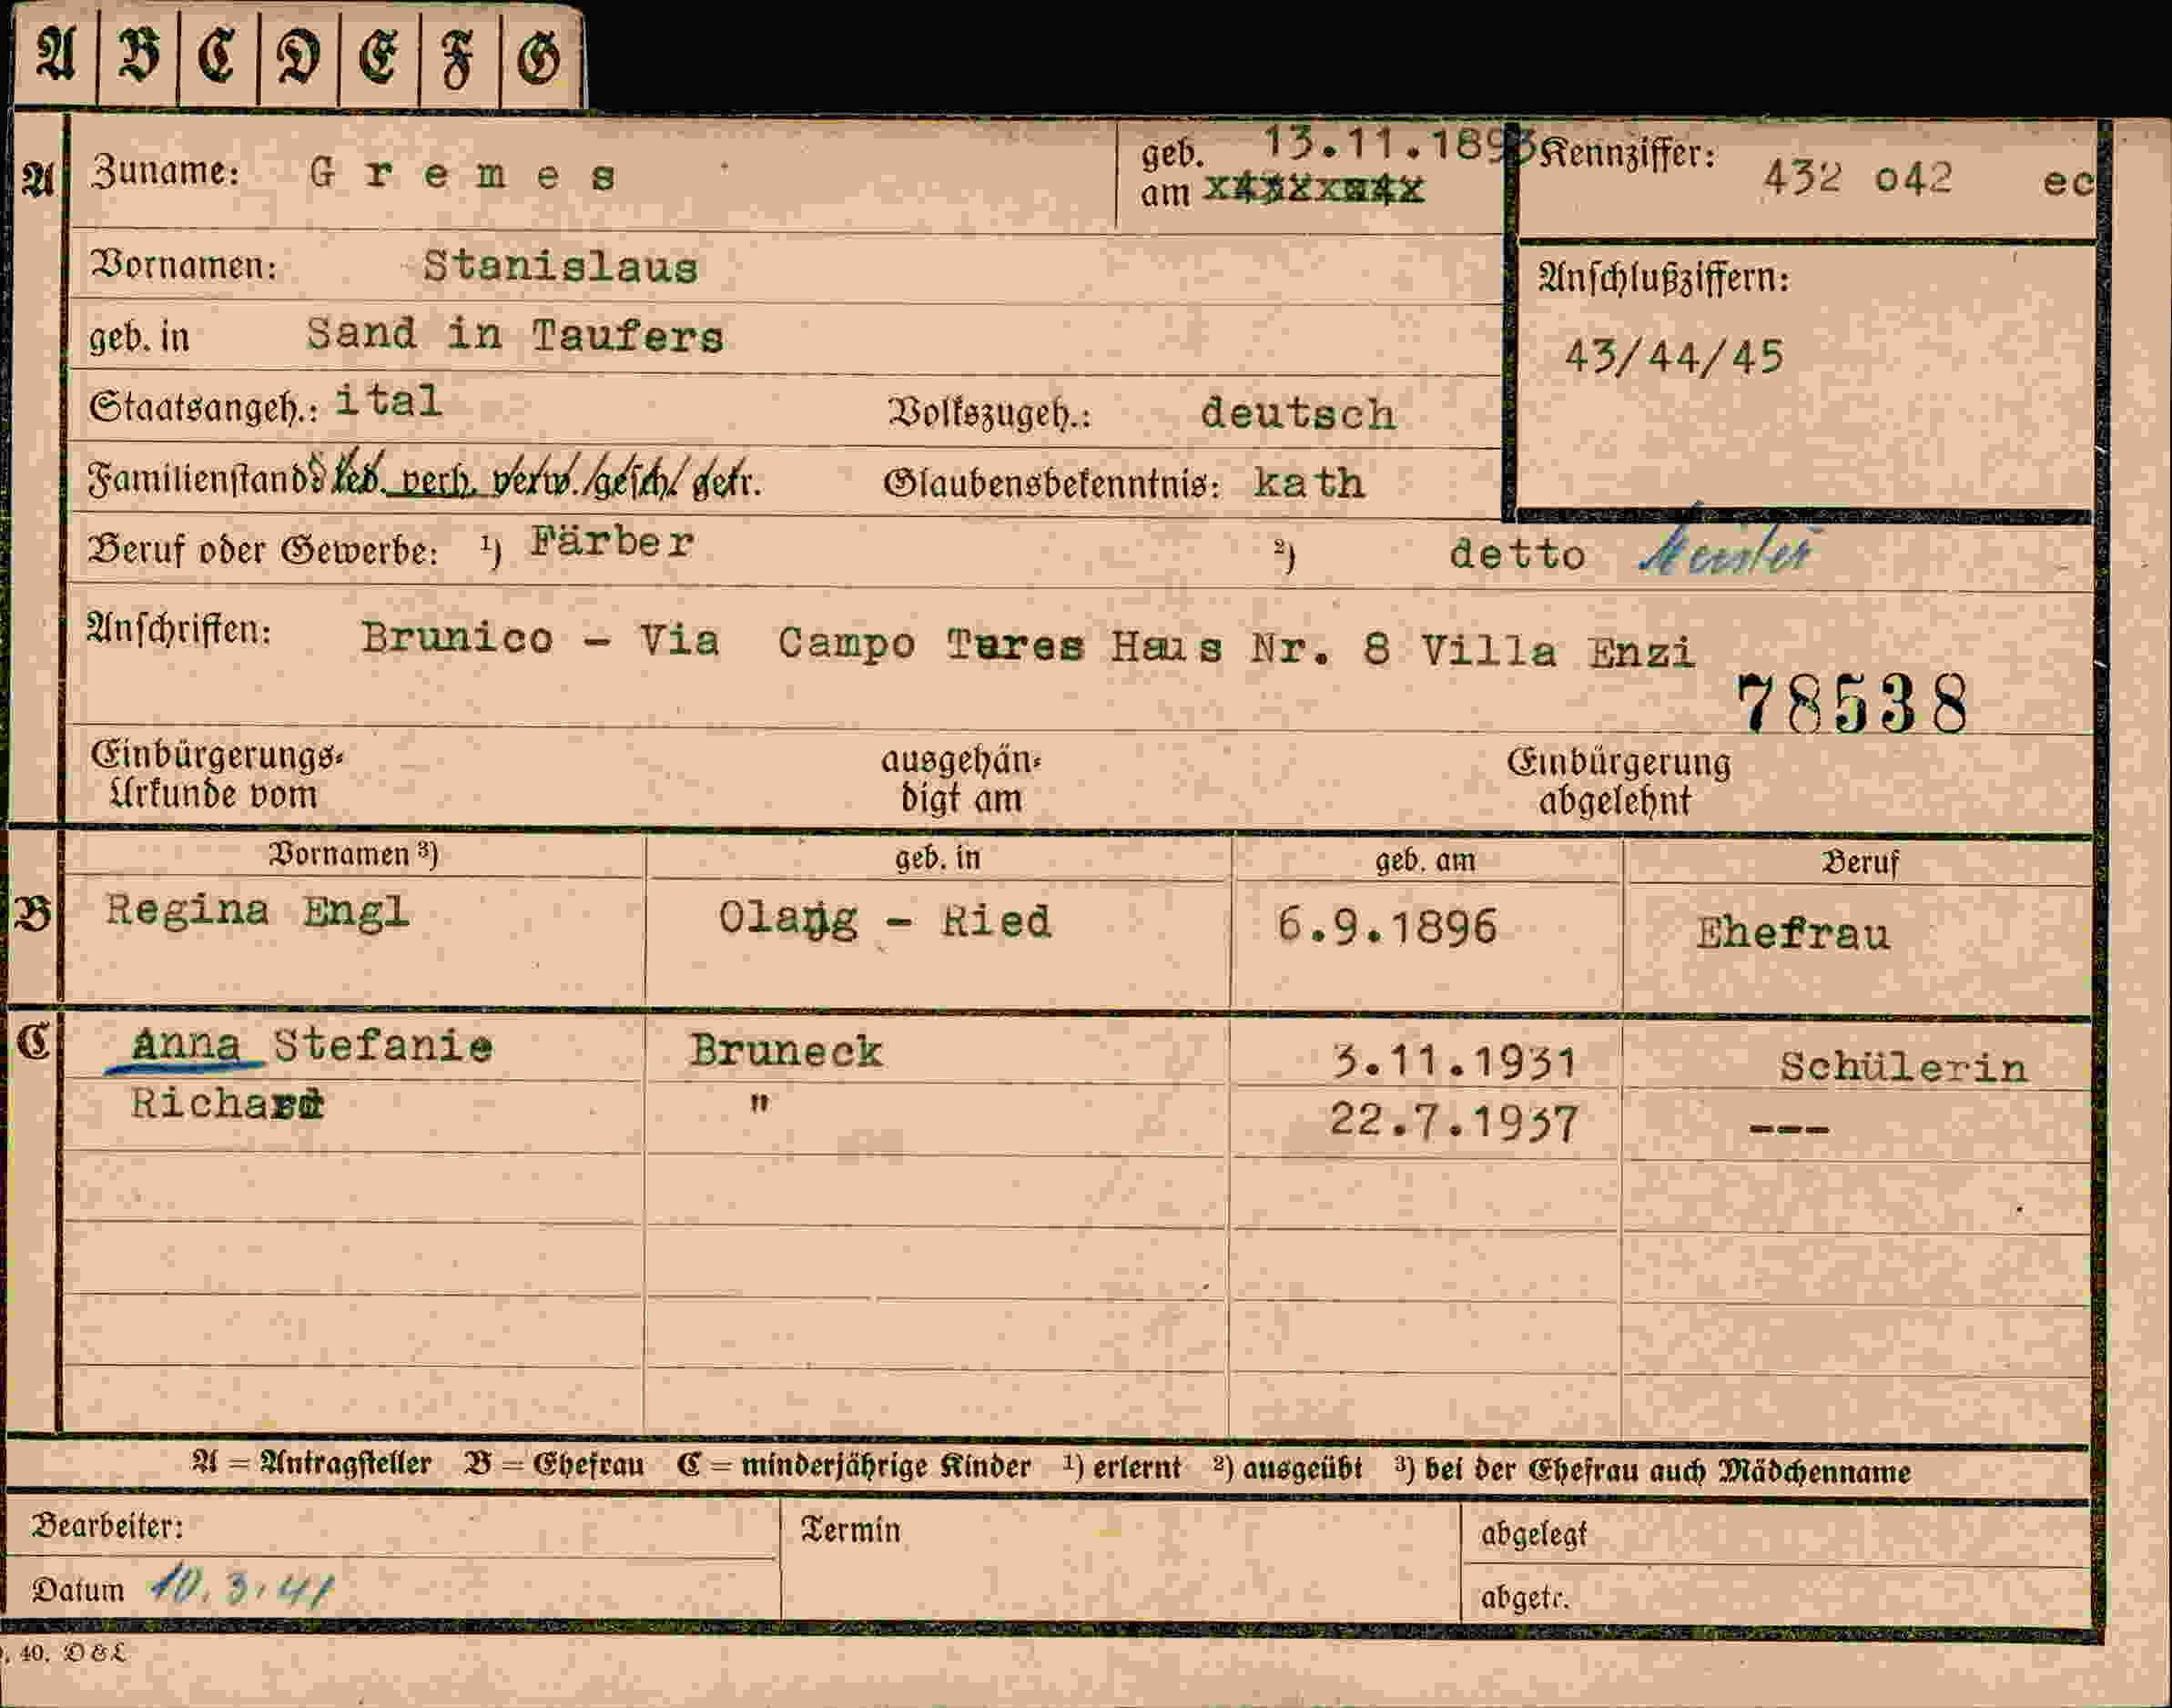 A B C D E F G
A Zuname: Gremes geb. am 13.11.1893 Kennziffer: 432 042 ec
Vornamen: Stanislaus
Anschlußziffern:
geb. in Sand in Taufers
43/44/45
Staatsangeh.: ital Volkszugeh.: deutsch
Familienstand: led. verh. verw. gesch. getr. Glaubensbekenntnis: kath
Beruf oder Gewerbe: ¹) Färber ²) detto Meister
Anschriften: Brunico - Via Campo Tures Haus Nr. 8 Villa Enzi
78538
Einbürgerungs- ausgehän- Einbürgerung
Urkunde vom digt am abgelehnt
Vornamen ³) geb. in geb. am Beruf
B Regina Engl Olang - Ried 6.9.1896 Ehefrau
C Anna Stefanie Bruneck 3.11.1931 Schülerin
Richard " 22.7.1937 ---
A = Antragsteller B = Ehefrau C = minderjährige Kinder ¹) erlernt ²) ausgeübt ³) bei der Ehefrau auch Mädchenname
Bearbeiter: Termin abgelegt
Datum 10.3.41 abgetr.
. 40. D & L